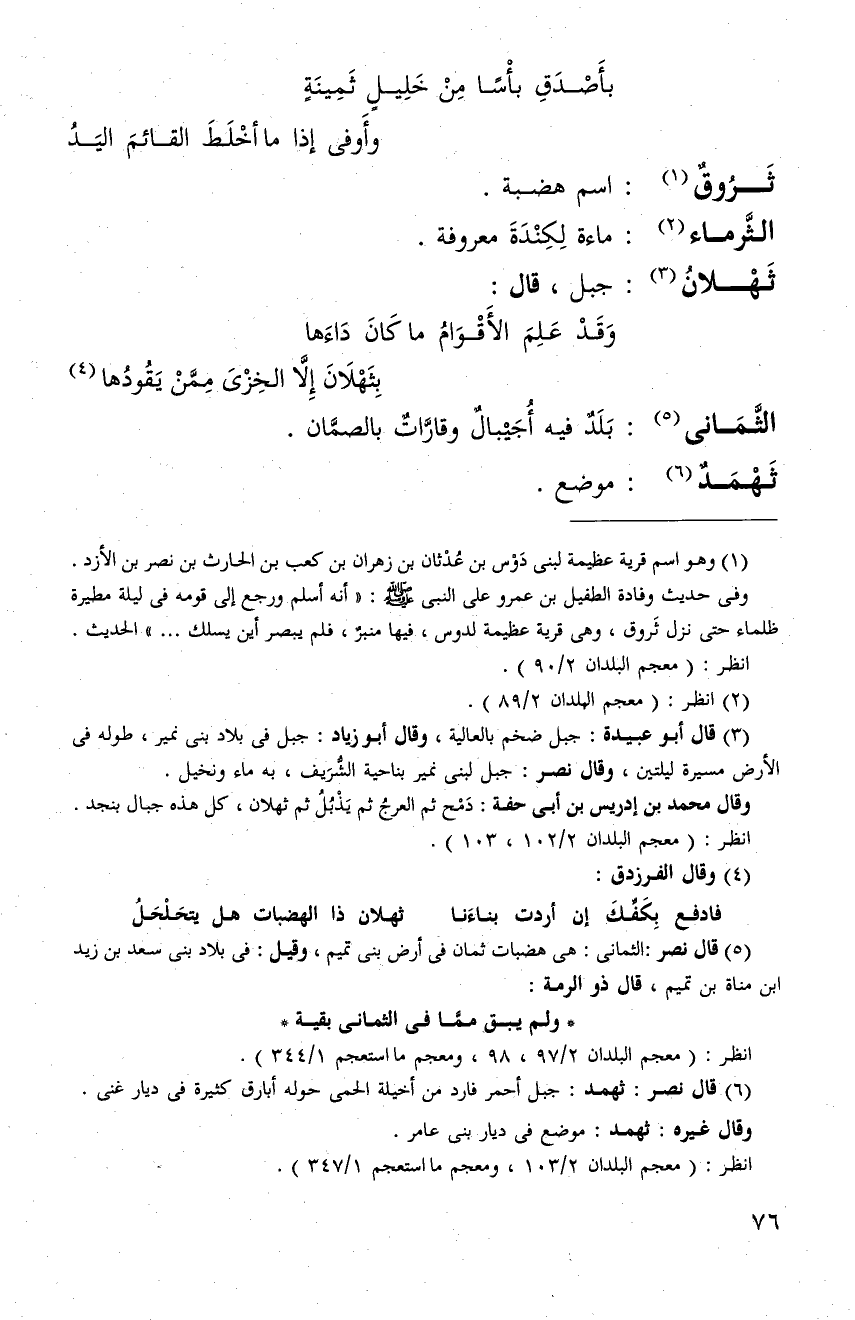 بأَصْـدَقِ بأْسًـا مِنْ خَلِيـلٍ ثَمِينَةٍ
وأَوفى إذا ما أَخْلَطَ القـائمَ اليَـدُ
ثَـــرُوقٌ (١) : اسم هضـبة .
الـثَّرمـاء (٢) : ماءة لِكِنْدَةَ معروفة .
ثَـهْـــلانُ (٣) : جبل ، قال :
وَقَـدْ عَلِمَ الأَقْـوَامُ ما كَانَ دَاءَها
بِثَهْلَانَ إِلَّا الخِزْىَ مِمَّنْ يَقُودُها (٤)
الثَّـمَـانى (٥) : بَلَدٌ فيه أُجَيْبالٌ وقارَّاتٌ بالصمَّان .
ثَـهْـمَـدٌ (٦) : موضع .
(١) وهـو اسم قرية عظيمة لبنى دَوْس بن عُدْثان بن زهران بن كعب بن الحارث بن نصر بن الأزد .
وفى حديث وفادة الطفيل بن عمرو على النبى ﷺ : « أنه أسلم ورجع إلى قومه فى ليلة مطيرة
ظلماء حتى نزل ثَروق ، وهى قرية عظيمة لدوس ، فيها منبرٌ ، فلم يبصر أين يسلك ... » الحديث .
انظر : ( معجم البلدان ٩٠/٢ ) .
(٢) انظر : ( معجم البلدان ٨٩/٢ ) .
(٣) قال أبـو عبـيدة : جبل ضخم بالعالية ، وقال أبـو زياد : جبل فى بلاد بنى نمير ، طوله فى
الأرض مسيرة ليلتين ، وقال نصـر : جبل لبنى نمير بناحية الشُّرَيف ، به ماء ونخيل .
وقال محمد بن إدريس بن أبـى حفـة : دَمْخ ثم العرجُ ثم يَذْبُلُ ثم ثهلان ، كل هذه جبال بنجد .
انظر : ( معجم البلدان ١٠٢/٢ ، ١٠٣ ) .
(٤) وقال الفـرزدق :
فادفـع بِكَفِّـكَ إن أردت بنـاءَنـا ثهـلان ذا الهضبات هـل يتحَلْحَلُ
(٥) قال نصر :الثمانى : هى هضبات ثمان فى أرض بنى تميم ، وقيـل : فى بلاد بنى سعد بن زيد
ابن مناة بن تميم ، قال ذو الرمة :
* ولـم يبـق ممَّـا فـى الثمانـى بقيـة *
انظر : ( معجم البلدان ٩٧/٢ ، ٩٨ ، ومعجم ما استعجم ٣٤٤/١ ) .
(٦) قال نصـر : ثهمـد : جبل أحمر فارد من أخيلة الحمى حوله أبارق كثيرة فى ديار غنى .
وقال غيـره : ثهمـد : موضع فى ديار بنى عامر .
انظر : ( معجم البلدان ١٠٣/٢ ، ومعجم ما استعجم ٣٤٧/١ ) .
٧٦